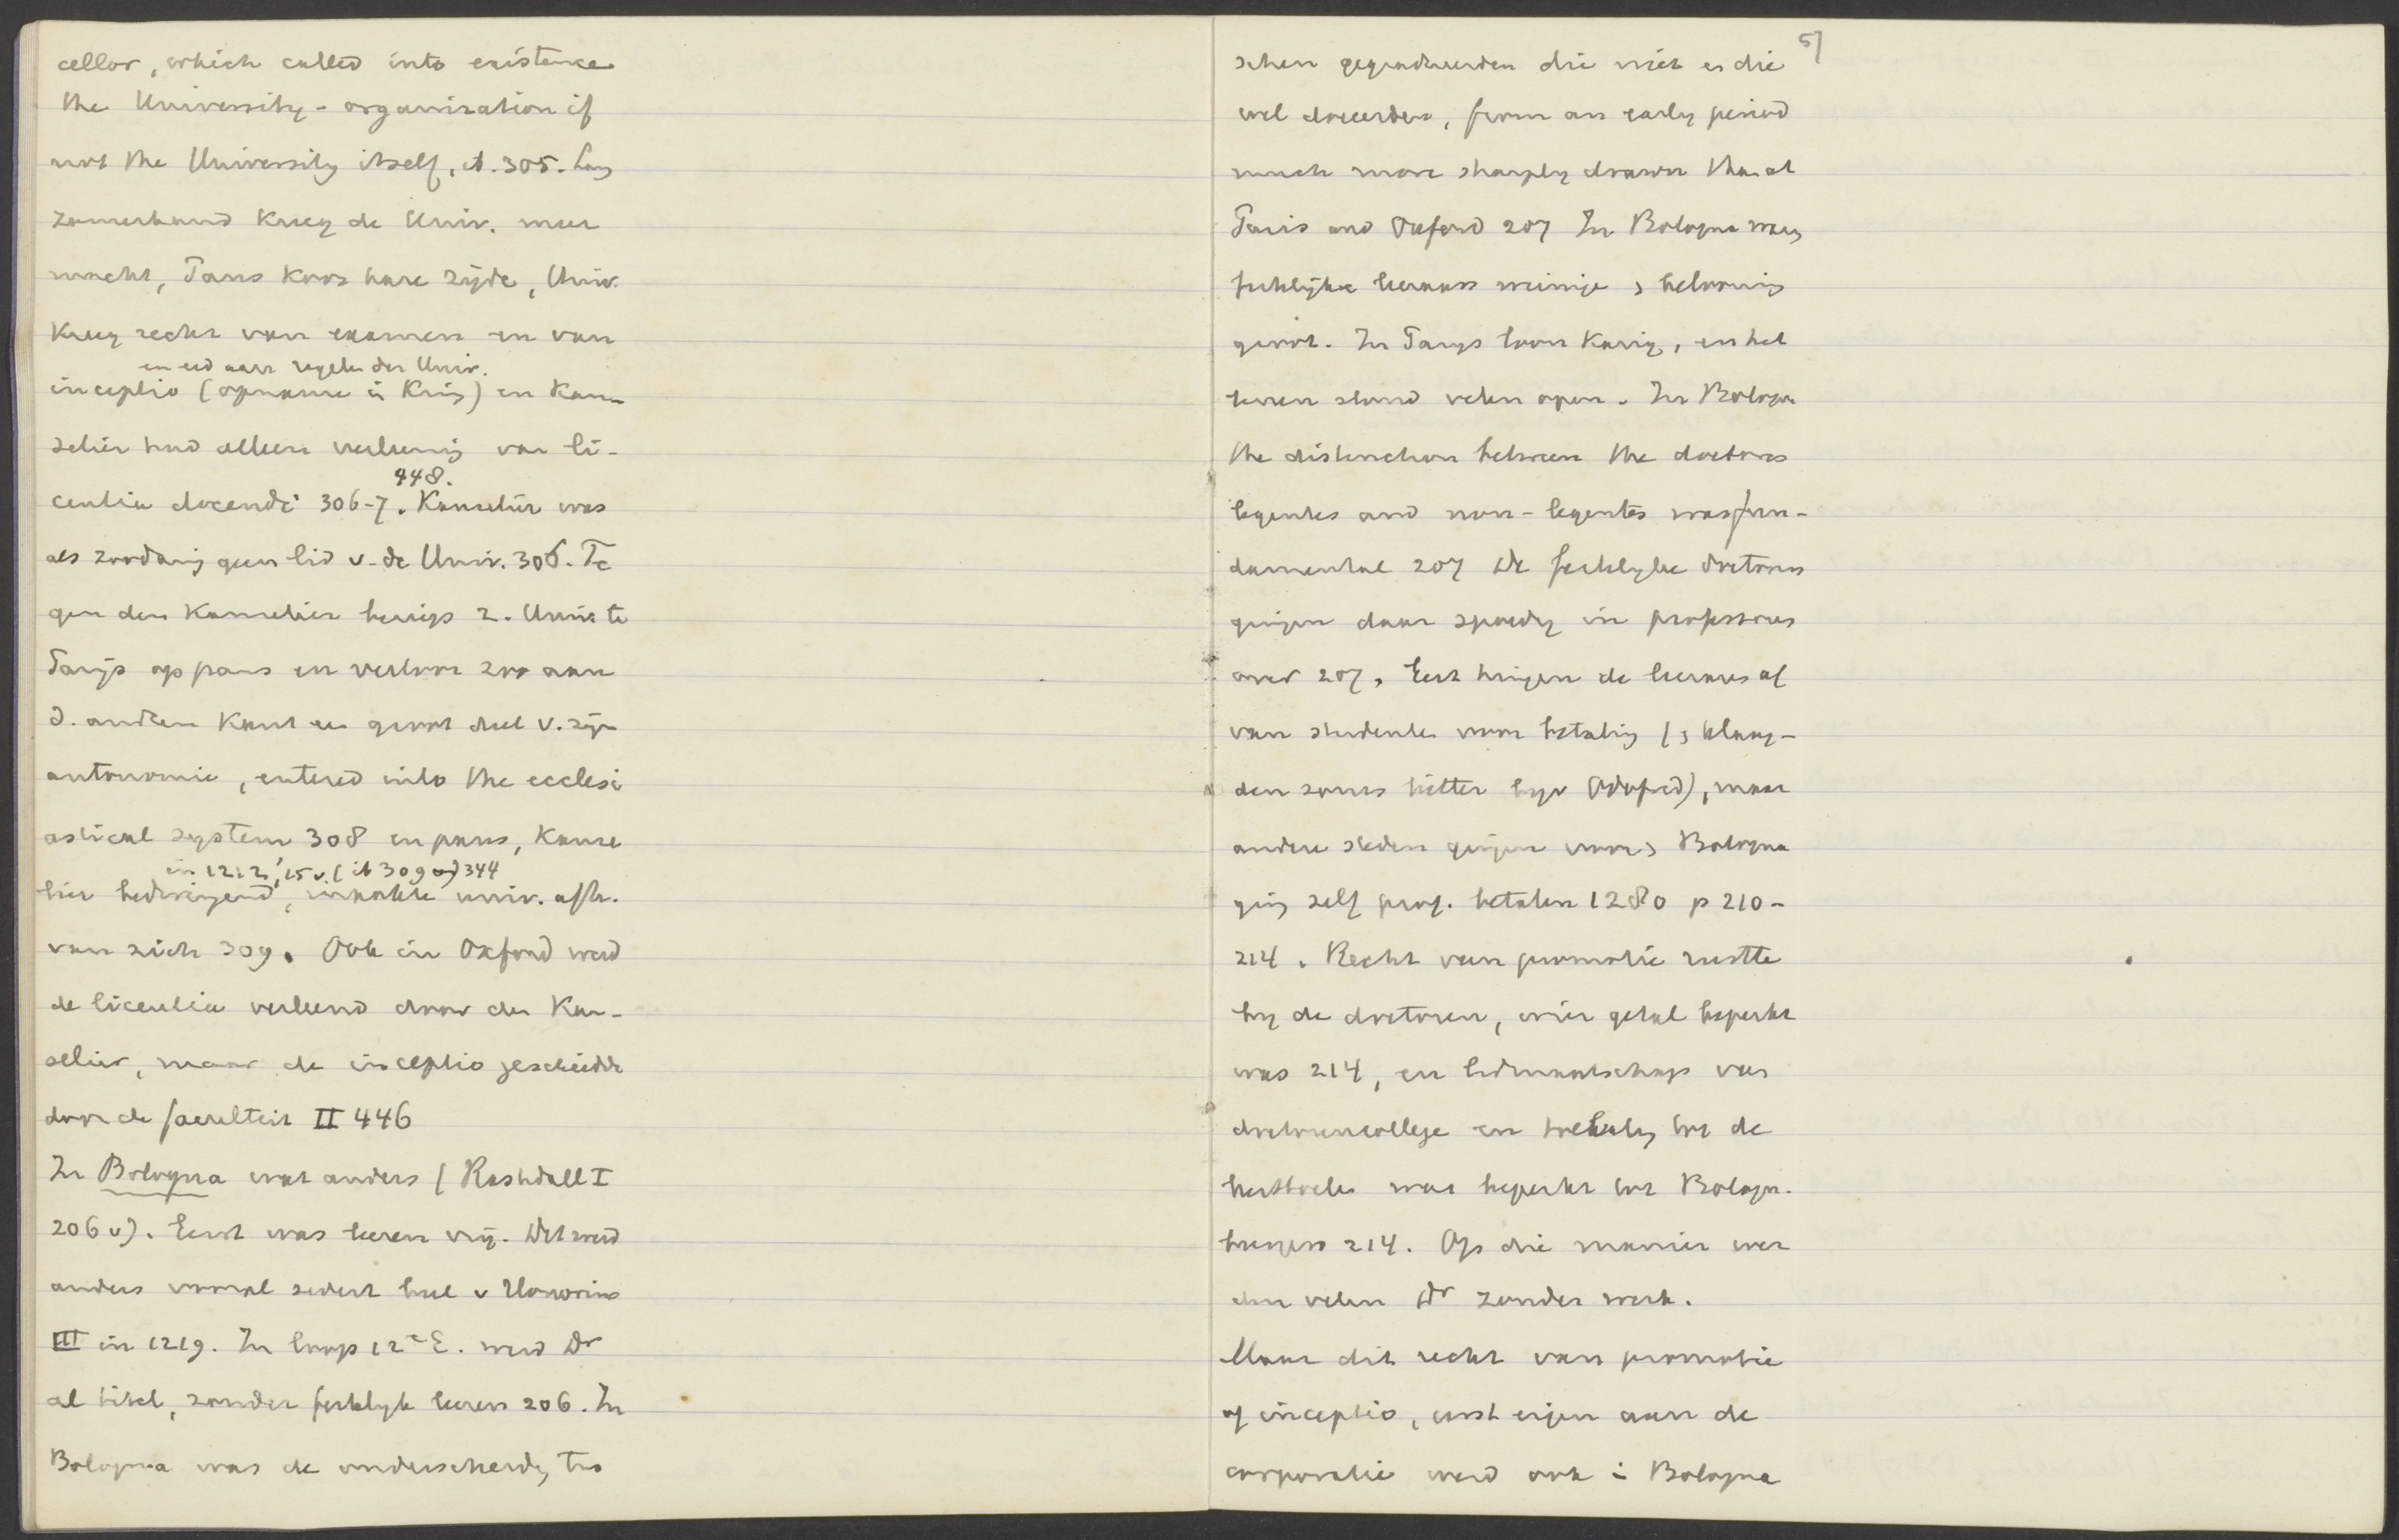 cellor, which called into existence
the University-organization if
not the University itself, ib. 305. Lang
zamerhand kreeg de Univ. meer
macht, Paus koos hare zijde, Univ.
kreeg recht van examen en van
en eed aan regelen der Univ.
inceptio (opname in Kring) en Kan-
selier had alleen verleening van li-
448.
centia docendi 306-7. Kanselier was
als zoodanig geen lid v. de Univ. 306. Te
gen den Kanselier beriep z. Univ. te
Parijs op paus en verloor zoo aan
d. andren Kant een groot deel v. zijn
autonomie, entered into the ecclesi
astical system 308 en paus, Kanse
in 1212, '15 v. (ib 309 en) 344
lier bedwingend, maakte univ. afh.
van zich 309. Ook in Oxford werd
de licentia verleend door den Kan-
selier, maar de inceptio geschiedde
door de faculteit II 446
In Bologna wat anders (Rashdall I
206 v). Eerst was leeren vrij. Dit werd
anders vooral sedert bul v Honorius
III in 1219. In loop 12e E. werd Dr
al titel, zonder feitelijk leeren 206. In
Bologna was de onderscheidg tus
57
schen gegradueerden die niet en die
wel doceerden, from an early period
much more sharply drawn than at
Paris and Oxford 207 In Bologna was
feitelijke leeraars weinige belooning
groot. In Parijs loon karig, en het
leeren stond velen open. In Bologna
the distinction between the doctores
legentes and non-legentes was fun-
damental 207 De feitelyke doctores
gingen daar spoedig in professores
over 207. Eerst hingen de leeraars af
van studenten voor betaling (klaag-
den soms bitter bijv Odofred), maar
andere steden gingen voor Bologna
ging zelf prof. betalen 1280 p 210-
214. Recht van promotie rustte
by de doctoren, wier getal beperkt
was 214, en lidmaatschap van
doctorencollege en toelating tot de
leerstoelen was beperkt tot Bologn.
burgers 214. Op die manier wer
den velen Dr zonder werk.
Maar dit recht van promotie
of inceptio, eerst eigen aan de
corporatie werd ook in Bologna